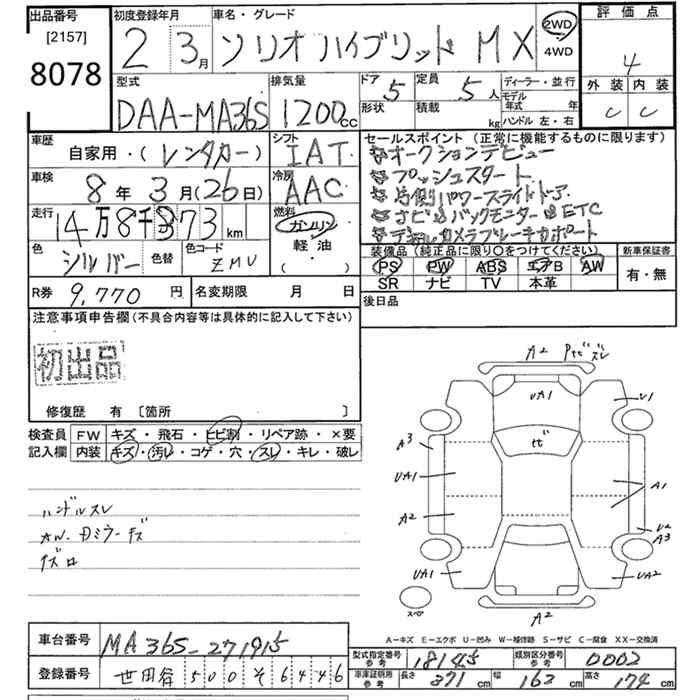 出品番号
[2157]
8078
初度登録年月
2 3月
車名・グレード
ソリオハイブリッド MX
2WD
4WD
評価点
4
外装 内装
C C
型式
DAA-MA36S
排気量
1200cc
ドア 5
形状
定員 5人
積載 kg
ディーラー・並行
モデル年式 年式
ハンドル 左・右
車歴
自家用・(レンタカー)
シフト
IAT
車検
8年3月(26日)
冷房
AAC
走行
14万8千873km
燃料
ガソリン
軽油
( )
色
シルバー
色替
色コード
ZMU
セールスポイント (正常に機能するものに限ります)
☆オークションデビュー
☆プッシュスタート
☆片側パワースライドドア
☆ナビ&バックモニター&ETC
☆デュアルカメラブレーキサポート
装備品 (純正品に限り○をつけてください)
PS PW ABS エアB AW
SR ナビ TV 本革
新車保証書
有・無
R券 9,770円
名変期限 月 日
後日品
注意事項申告欄 (不具合内容等は具体的に記入して下さい)
初出品
修復歴 有 [箇所 ]
検査員記入欄
FW キズ・飛石・ヒビ割・リペア跡・×要
内装 キズ・汚レ・コゲ・穴・スレ・キレ・破レ
ハンドルスレ
AW.Dミラーキズ
A2 Pセビスレ
UA1
U1
セビ
A3
UA1
A2
A1
U2
A3
UA1
UA2
スペア
A2
A－キズ E－エクボ U－凹み W－補修跡 S－サビ C－腐食 XX－交換済
車台番号 MA36S-271915
登録番号 世田谷 500 そ 6446
型式指定番号 参考 18145
類別区分番号 参考 0002
車庫証明用 参考 長さ 371cm 幅 162cm 高さ 174cm